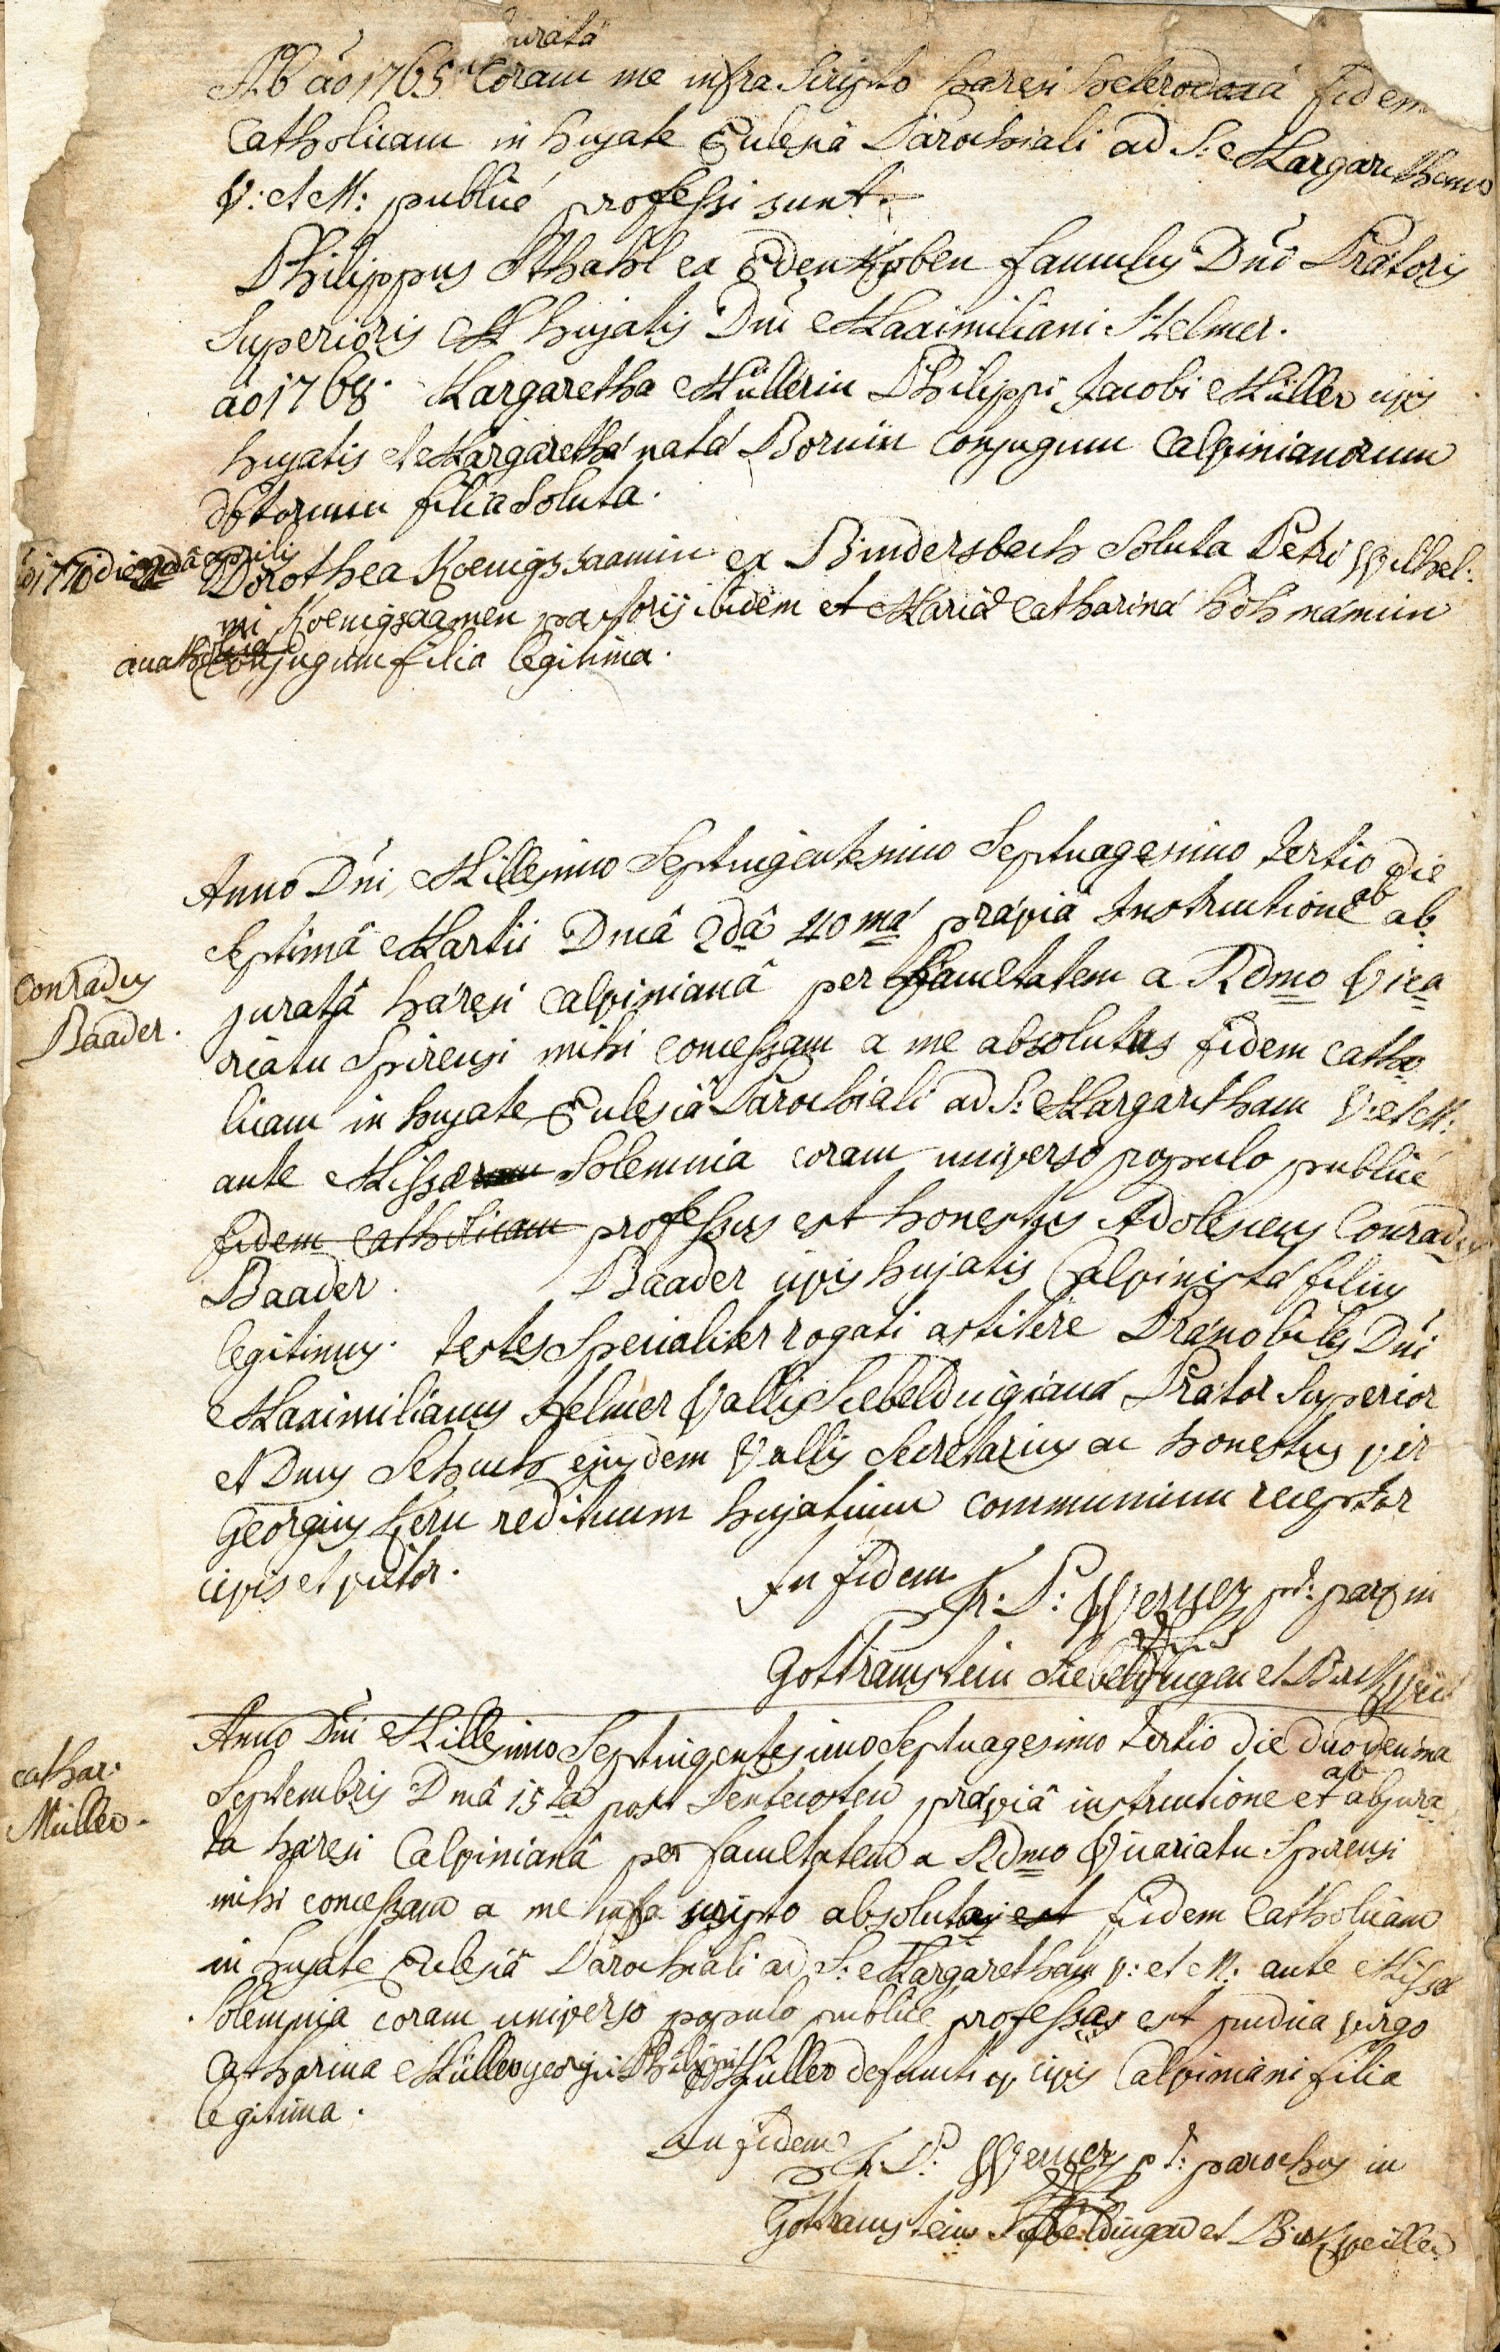 uratâ
Ab aõ 1765 Coram me infra Scripto hæresi heterodoxâ fidem
Catholicam in hujate Ecclesiâ Parochiali ad S: Margaritham
V: et M: publicè professi sunt.
Philippus Sthahl ex Edenkoben famulus Dni Prætoris
Superioris hujatis Dni Maximiliani Stelmer.
aõ 1768. Margaretha Müllerin Philippi Jacobi Müller civis
hujatis et Margarethæ natæ Bornin conjugum Calvinianorum
dictorum filia Soluta.
aõ 1770 die 2dâ aprilis Dorothea Koenigssaamin ex Bindersbach Soluta Petri Wilhel:
mi Koenigsaamen pastoris ibidem et Mariæ Catharinæ Hohmännin
acatholica conjugum filia legitima.
Anno Dni Millesimo Septingentesimo Septuagesimo tertio die
Septimâ Martii Dmâ 2dâ 40mæ præviâ Instructione ab ab
juratâ hæresi Calvinianâ per facultatem a Rdmo Vica
riatu Spirensi mihi concessam a me absolutus fidem catho
licam in hujate Ecclesiâ Parochiali ad S: Margaritham V: et M:
ante Missarum Solemnia coram universo populo publicè
fidem catholicam professus est honestus Adolescens Conradus
Baader. Baader civis hujatis Calvinistæ filius
legitimus. testes Specialiter rogati astitêre Prænobiles Dni
Maximilianus Stelmer Vallis Siebeldingianæ Prætor Superior
et Dnus Schuch ejusdem Vallis Secretarius ac honestus vir
Georgius Kern redituum hujatium communium receptor
civis et vietor.
Conradus
Baader.
In fidem Fr: P: Werner p.t: par in
Gottramstein Siebeldingen et Birkweiler
Anno Dni Millesimo Septingentesimo Septuagesimo tertio die duodecima
Septembris Dmâ 15tâ post Pentecosten præviâ instructione et ab abjura
ta hæresi Calvinianâ per facultatem a Rdmo Vicariatu Spirensi
mihi concessam a me infra scripto absoluta est fidem Catholicam
in hujate Ecclesiâ Parochiali ad S: Margaretham V: et M: ante Missæ
Solemnia coram universo populo publicè professa est pudica virgo
Catharina Müller georgii Philippi Müller defuncti civis Calviniani filia
legitima.
cathar:
Müller.
In fidem Fr. P: Werner p t: parochus in
Gottramstein Siebeldingen et Birkweiller